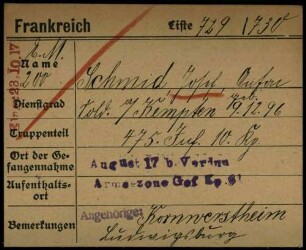 Frankreich Liste 729 / 730
Name Schmid Josef Anton
200
Dienstgrad Sold. Kempten 19.12.96
Truppenteil 475 Inf 10. Kp
Ort der Ge-
fangennahme August 17 b. Verdun
Aufenthalts-
ort Armeezone Gef Kp.
Bemerkungen Angehörige: Kornwestheim
Ludwigsburg